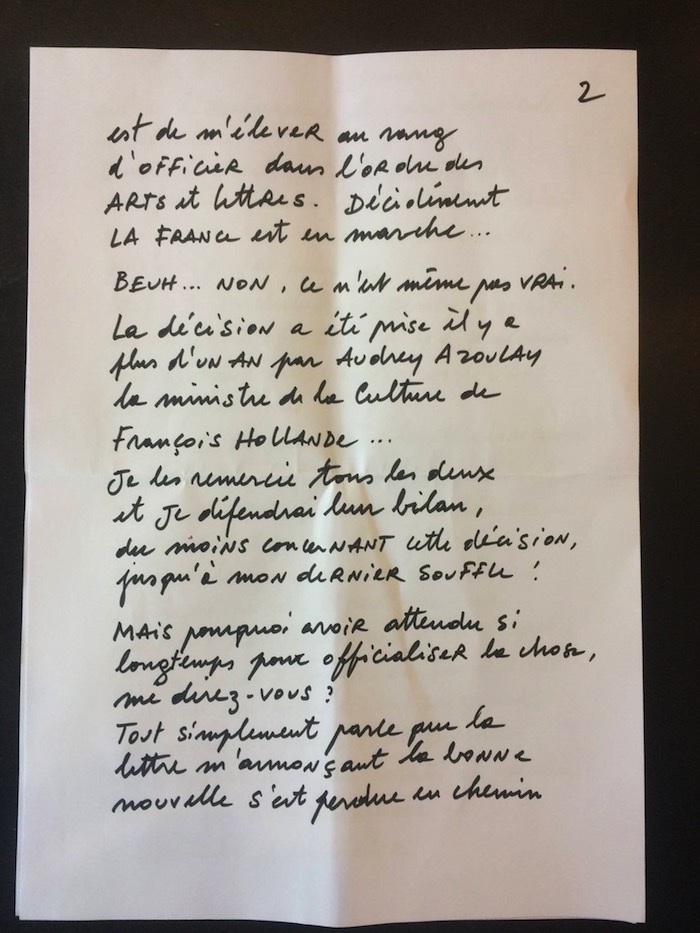 2
est de m'éleveR au rang
d'OFFICIER dans l'ORdre des
ARTS et lettRes. Décidément
LA FRANCE est en marche...
BEUH... NON, ce n'est même pas VRAI.
La décision a été prise il y a
plus d'UN AN par Audrey AZOULAY
la ministre de la Culture de
François HOLLANDE...
Je les remercie tous les deux
et Je défendrai leur bilan,
du moins conceRNANT cette décision,
jusqu'à mon deRNIER souffle !
MAis pourquoi avoir attendu si
longtemps pour officialiseR la chose,
me direz-vous ?
Tout simplement parce que la
lettre m'annonçant la bonne
nouvelle s'est perdue en chemin